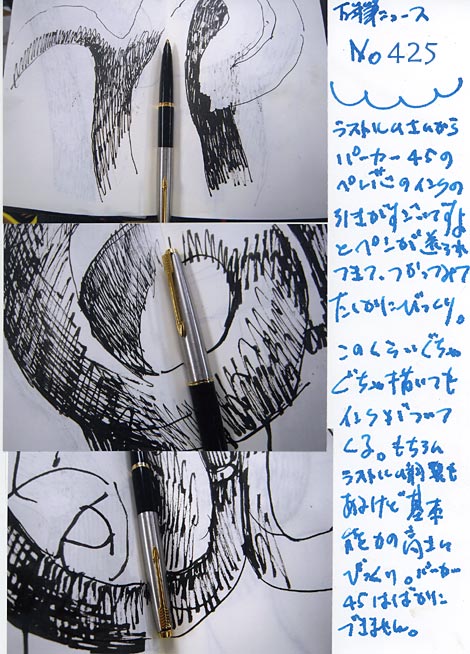 万年筆ニュース
No 425
ラストルムさんから
パーカー45の
ペン芯のインクの
引きがすごいですよ
とペンが送られ
てきて、つかってみて
たしかにびっくり。
このくらいぐちゃ
ぐちゃ描いても
インクがついて
くる。もちろん
ラストルム調整も
あるけど基本
能力の高さに
びっくり。パーカー
45はばかに
できません。